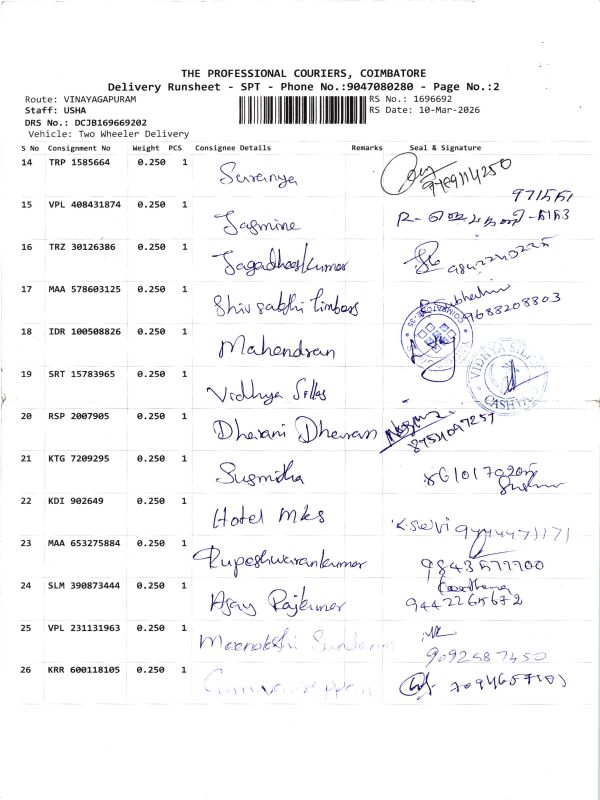 THE PROFESSIONAL COURIERS, COIMBATORE
Delivery Runsheet - SPT - Phone No.:9047080280 - Page No.:2
Route: VINAYAGAPURAM RS No.: 1696692
Staff: USHA RS Date: 10-Mar-2026
DRS No.: DCJB169669202
Vehicle: Two Wheeler Delivery
S No Consignment No Weight PCS Consignee Details Remarks Seal & Signature
14 TRP 1585664 0.250 1 Saranya
15 VPL 408431874 0.250 1 Jasmine
16 TRZ 30126386 0.250 1 Jagadheeskumar
17 MAA 578603125 0.250 1 Shiv sakthi Timbers 9688208803
18 IDR 100508826 0.250 1 Mahendran
19 SRT 15783965 0.250 1 Vidhya Sillas
20 RSP 2007905 0.250 1 Dharani Dharan 8754097257
21 KTG 7209295 0.250 1 Susmitha
22 KDI 902649 0.250 1 Hotel Mks K.Selvi
23 MAA 653275884 0.250 1 Rupeshwarankumar 9843577700
24 SLM 390873444 0.250 1 Ajay Rajkumar 9442265672
25 VPL 231131963 0.250 1 Meenakshi Sundaram 9092587450
26 KRR 600118105 0.250 1